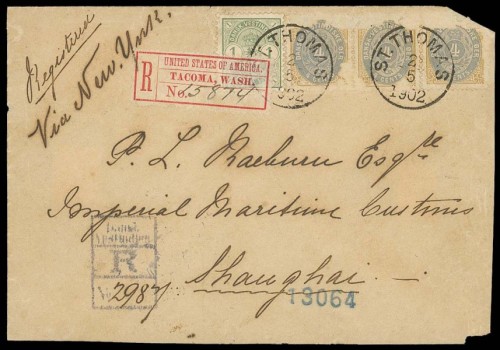 Registered
Via New York.
1
4
4
4
ST. THOMAS
2
5
1902
ST. THOMAS
2
5
1902
R
UNITED STATES OF AMERICA.
TACOMA, WASH.
No. 15874
P. L. Raeburn Esqre
Imperial Maritime Customs
Shanghai
Dansk
Vestindien
R
No. 2987
13064